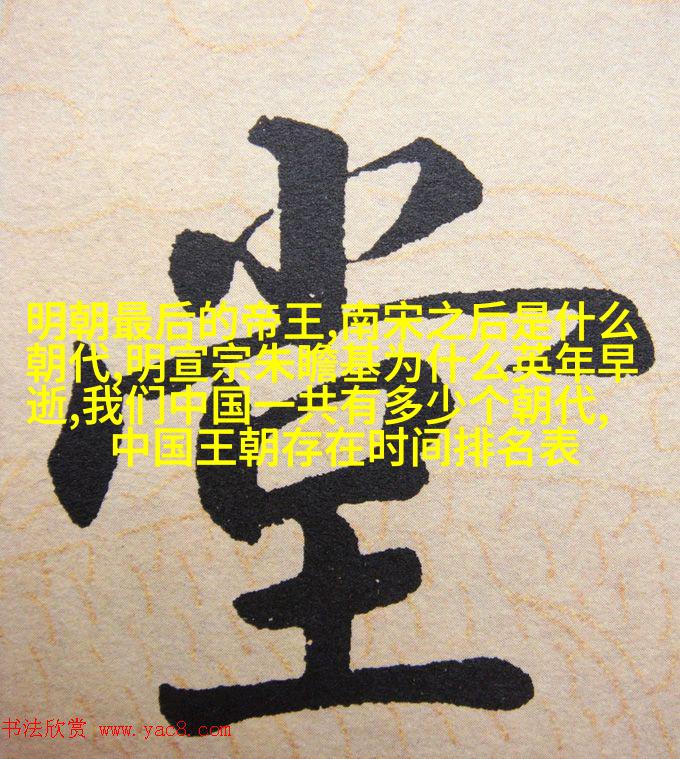 堂
明朝最后的帝王,南宋之后是什么
朝代,明宣宗朱瞻基为什么英年早
逝,我们中国一共有多少个朝代,
中国王朝存在时间排名表
书法欣赏 www.yac8.com